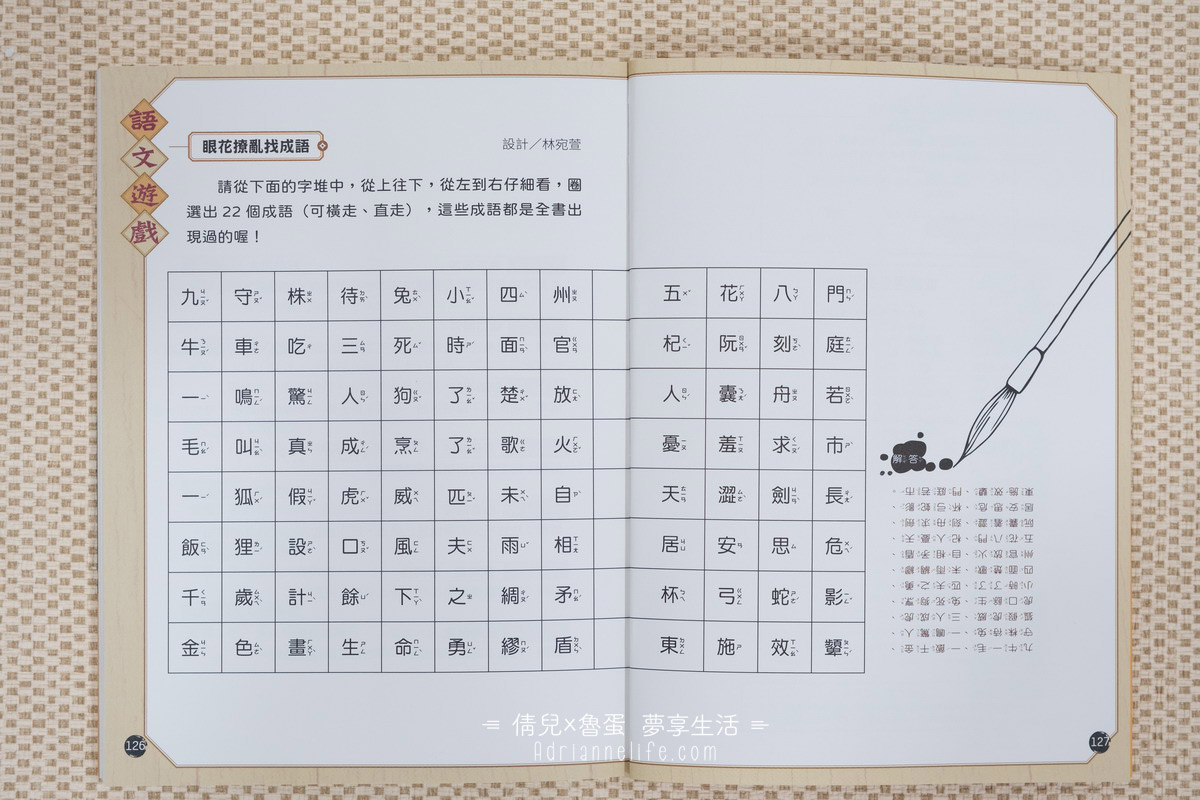 語文遊戲
眼花撩亂找成語
設計／林宛萱
請從下面的字堆中，從上往下，從左到右仔細看，圈
選出 22 個成語（可橫走、直走），這些成語都是全書出
現過的喔！
九 守 株 待 兔 小 四 州 五 花 八 門
牛 車 吃 三 死 時 面 官 杞 阮 刻 庭
一 鳴 驚 人 狗 了 楚 放 人 囊 舟 若
毛 叫 真 成 烹 了 歌 火 憂 羞 求 市
一 狐 假 虎 威 匹 未 自 天 澀 劍 長
飯 狸 設 口 風 夫 雨 相 居 安 思 危
千 歲 計 餘 下 之 綢 矛 杯 弓 蛇 影
金 色 畫 生 命 勇 繆 盾 東 施 效 顰
解答：
九牛一毛、一飯千金、
守株待兔、一鳴驚人、
狐假虎威、三人成虎、
虎口餘生、兔死狗烹、
小時了了、匹夫之勇、
四面楚歌、未雨綢繆、
州官放火、自相矛盾、
五花八門、杞人憂天、
阮囊羞澀、刻舟求劍、
居安思危、杯弓蛇影、
東施效顰、門庭若市。
126
127
倩兒×魯蛋 夢享生活
Adriannelife.com